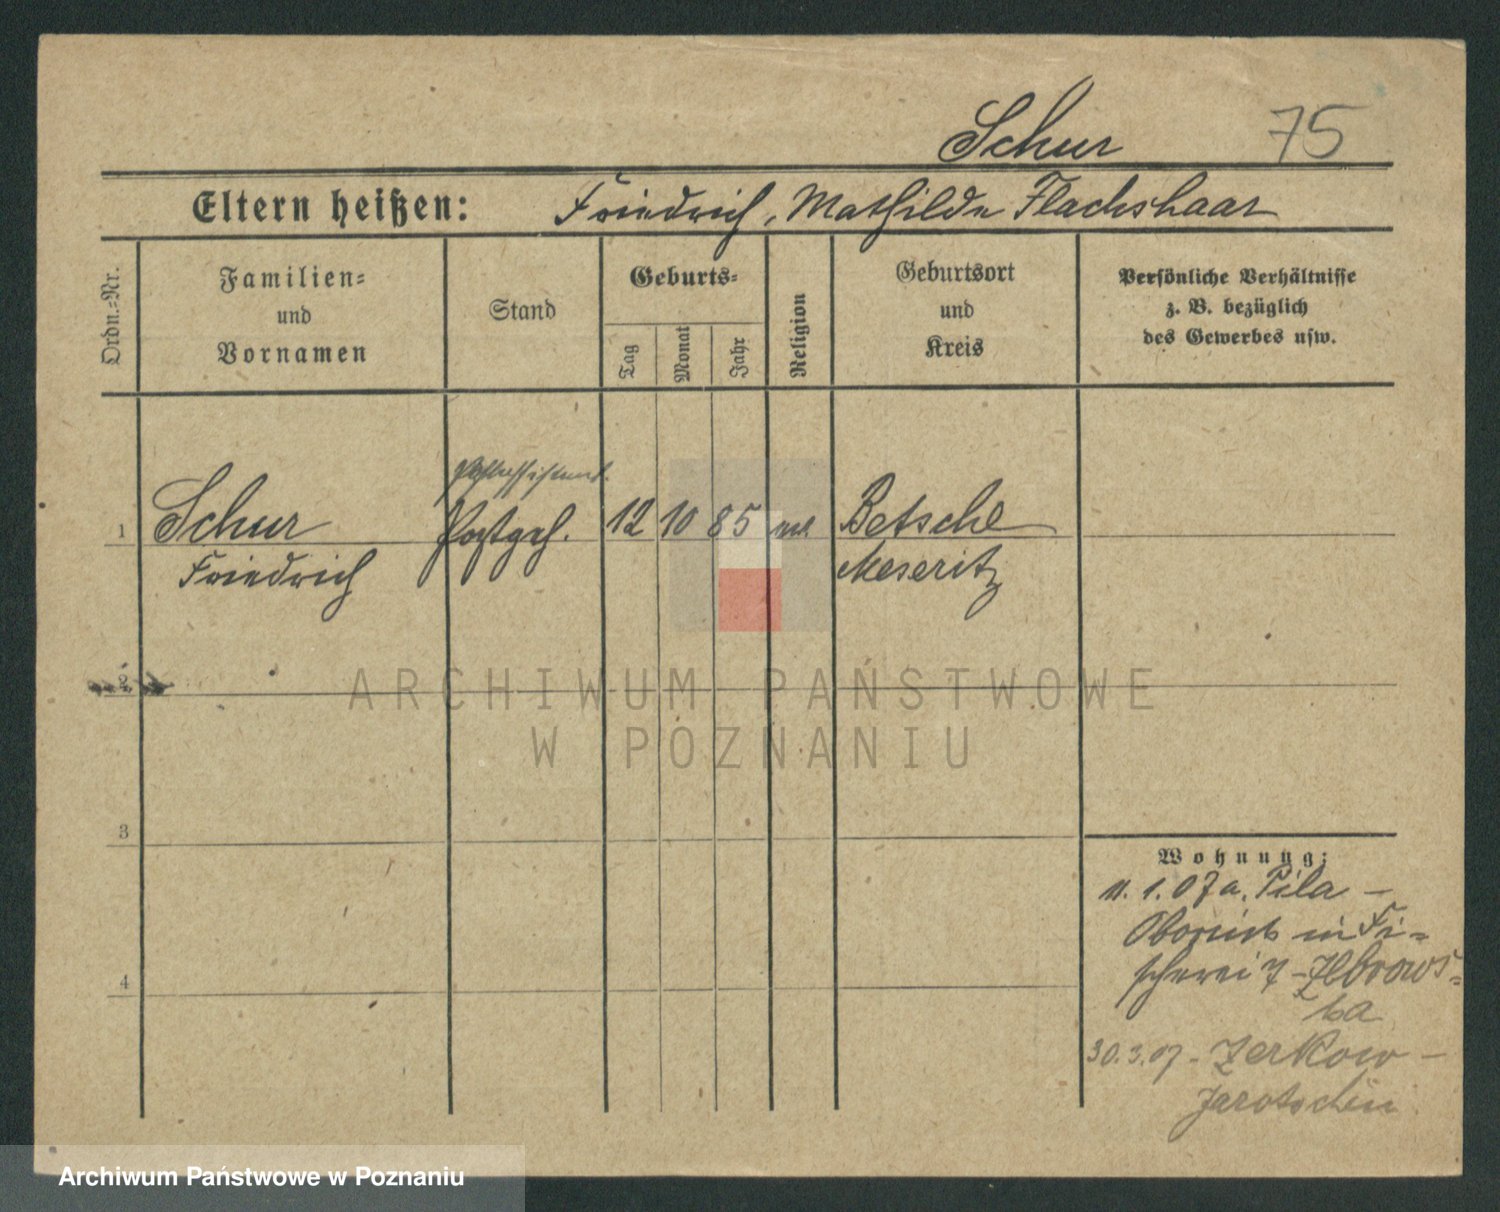 Schur 75
Eltern heißen: Friedrich, Mathilde Flachshaar
Ordn.-Nr.
Familien- und Vornamen
Stand
Geburts-
Tag
Monat
Jahr
Religion
Geburtsort und Kreis
Persönliche Verhältnisse
z. B. bezüglich
des Gewerbes usw.
Postassistent.
1 Schur Postgeh. 12 10 85 Betsche
Friedrich Meseritz
2
ARCHIWUM PAŃSTWOWE
W POZNANIU
3
Wohnung:
11. 1. 07 a. Pila –
Obornik in Fi-
scherei 7 –
4
30.3.07 – Zerkow –
Jarotschin
Archiwum Państwowe w Poznaniu